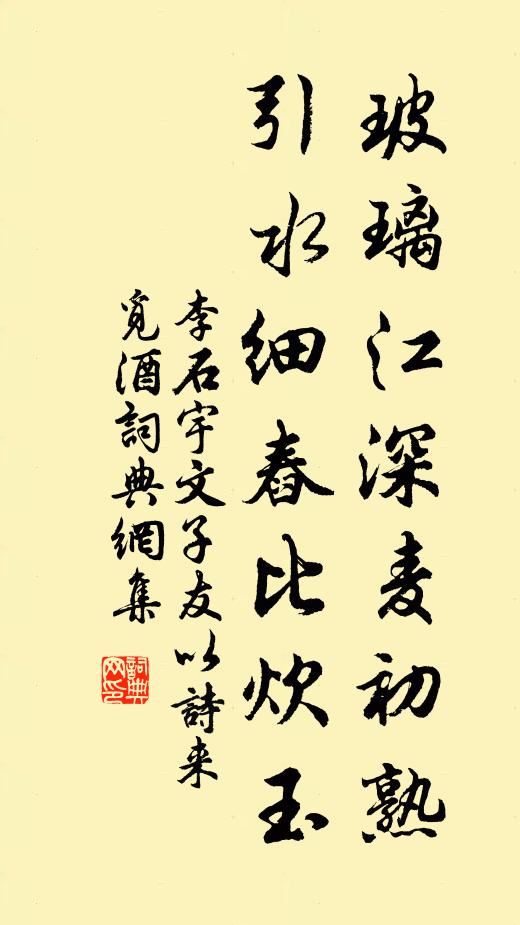 玻璃江深麦初熟
引水细舂比炊玉
李石宇文子友以詩来
覓酒詞典網集
詞典网印